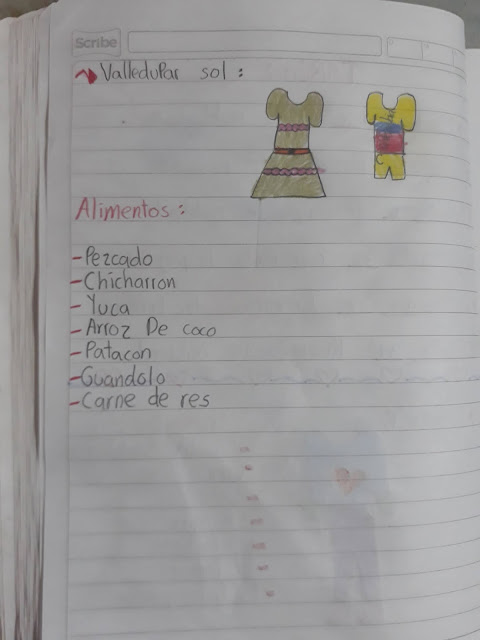 Scribe
Valledupar sol:
Alimentos:
- Pezcado
- Chicharron
- Yuca
- Arroz De coco
- Patacon
- Guandolo
- Carne de res